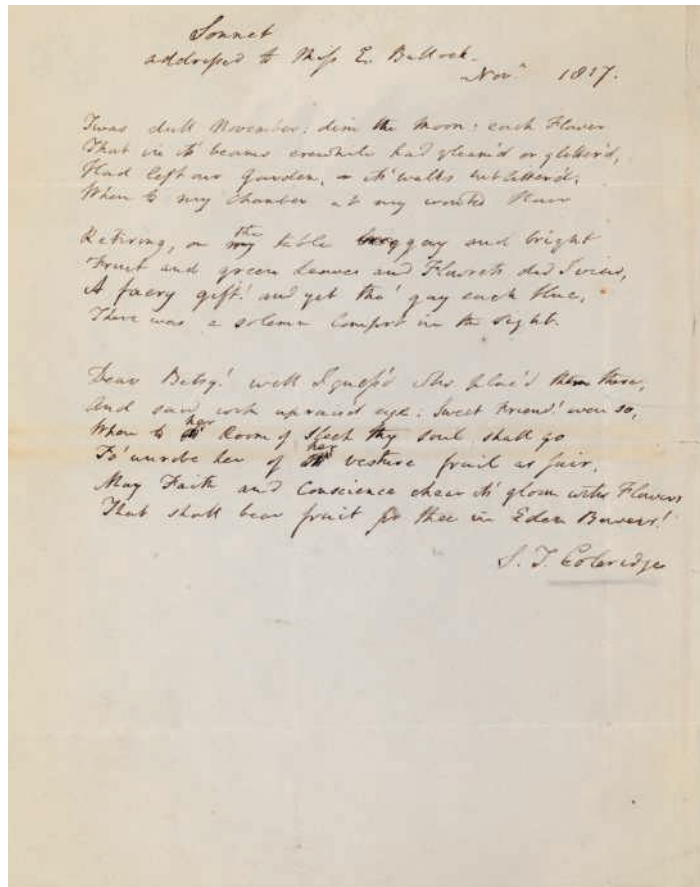 Sonnet
addressed to Miss E. Bullock.
Novr 1817.
Twas dull November: dim the Moon: each Flower
That in it's beams erewhile had gleam'd or glitter'd,
Had left our Garden, it's walks but litter'd;
When to my Chamber at my wonted Hour
Retiring, on the my table gay and bright
Fruit and green Leaves and Flowrets did I view,
A faery gift! and yet tho' gay each Hue,
There was a solemn Comfort in the sight.
Dear Betsy! well I guess'd who plac'd them there,
And said with upraised eye: Sweet Friend! even so,
When to her Room of Sleep thy soul shall go
T' unrobe her of her vesture frail as fair,
May Faith and Conscience chear it's gloom with Flowers
That shall bear fruit for thee in Eden Bowers!
S. T. Coleridge